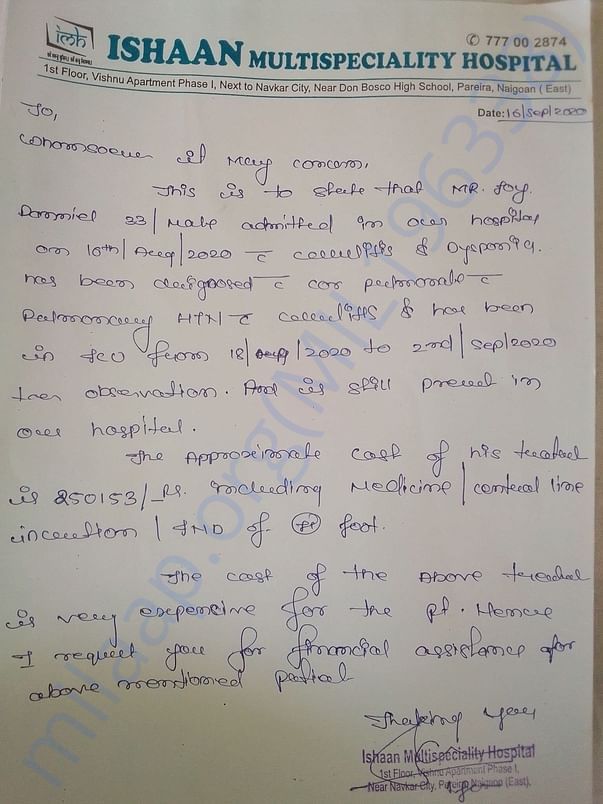 imh
✆ 777 00 2874
ISHAAN MULTISPECIALITY HOSPITAL
1st Floor, Vishnu Apartment Phase I, Next to Navkar City, Near Don Bosco High School, Pareira, Naigoan ( East)
Date: 16/Sep/2020
To,
whomsoever it may concern,
This is to state that MR. Joy.
33/Male admitted in our hospital
on 16th/Aug/2020 c̄ cellulitis &
has been c̄ cor c̄
HTN c̄ cellulitis & has been
in ICU from 18/Aug/2020 to 2nd/Sep/2020
observation. And is still in
our hospital.
The Approximate cost of his
is 250153/_Rs. including Medicine/central line
/ IND of foot.
The cost of the Above
is very expensive for the pt. Hence
I request you for financial assistance for
above mentioned
Thanking you
Ishaan Multispeciality Hospital
1st Floor, Vishnu Apartment Phase I,
Near Navkar City, Pareira, Naigaon (East),
milaap.org(MIL196333)